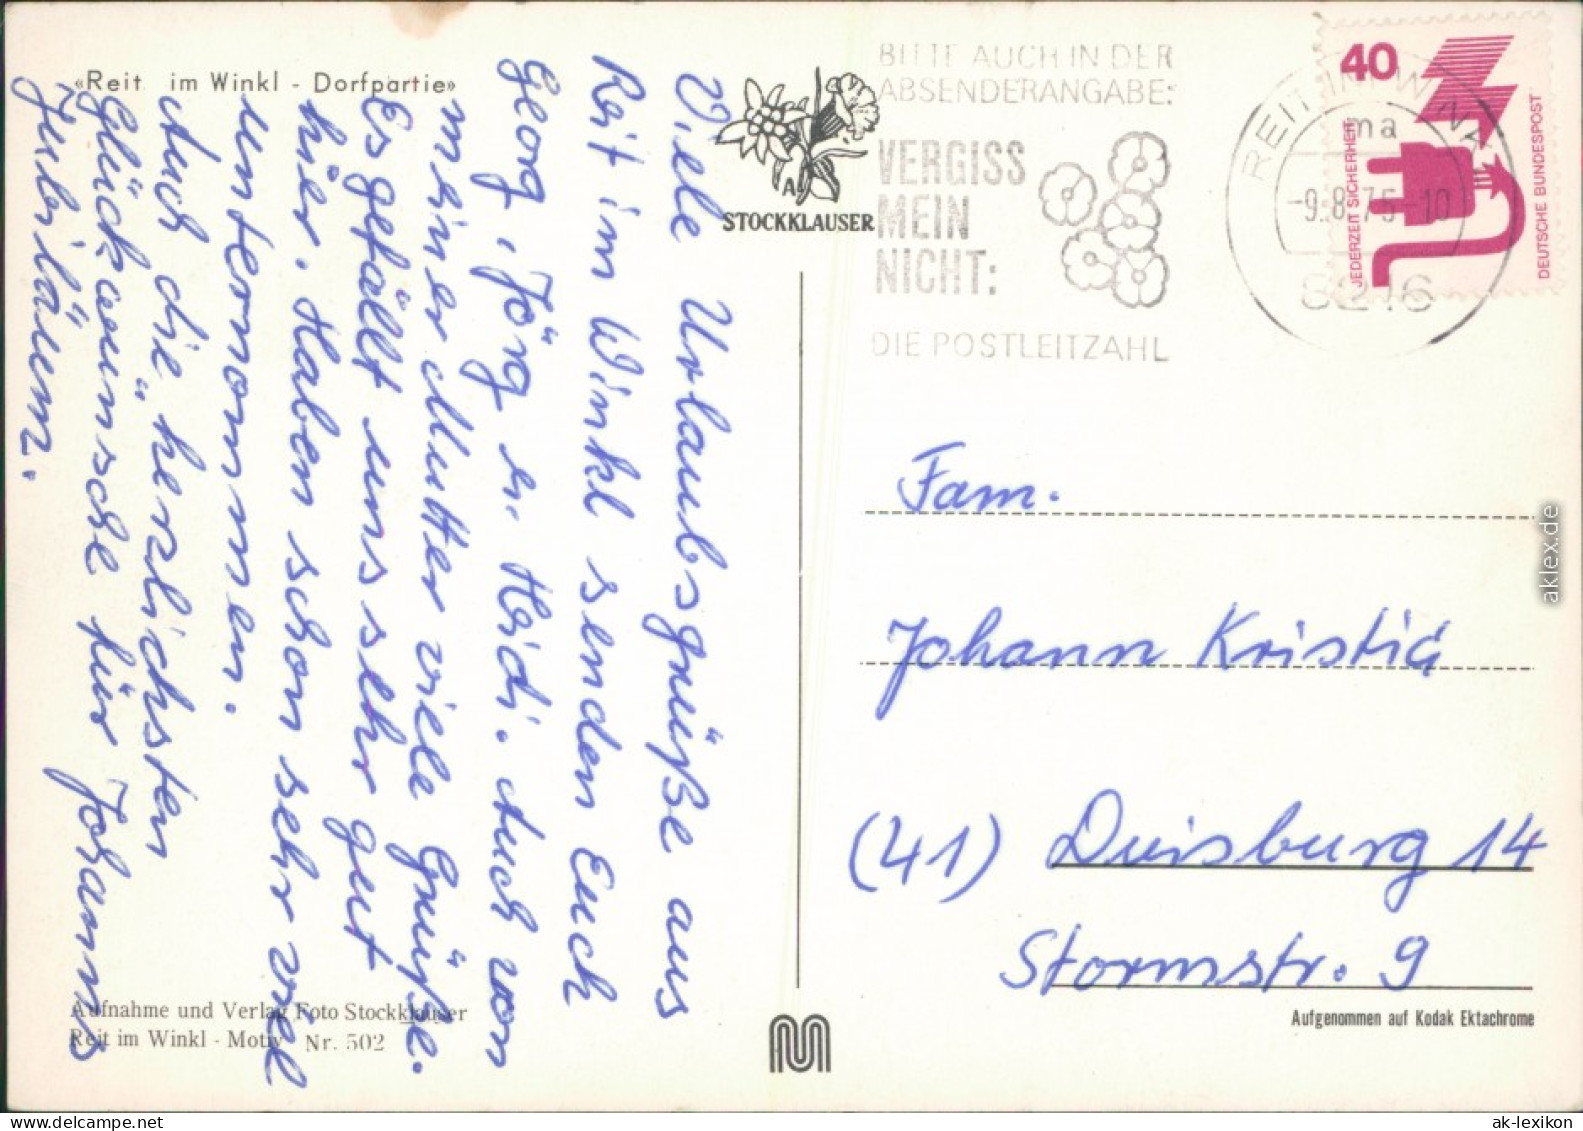 «Reit im Winkl - Dorfpartie»
Viele Urlaubsgrüße aus
Reit im Winkl senden Euch
Georg, Jörg u. Heidi. Auch von
meiner Mutter viele Grüße.
Es gefällt uns sehr gut
hier. Haben schon sehr viel
unternommen.
Auch die herzlichsten
Glückwünsche für Johanns
Jubiläum.
STOCKKLAUSER
BITTE AUCH IN DER
ABSENDERANGABE:
VERGISS
MEIN
NICHT:
DIE POSTLEITZAHL
REIT IM WINKL
ma
-9.8.75-10
8216
40
JEDERZEIT SICHERHEIT
DEUTSCHE BUNDESPOST
Fam.
Johann Kristić
(41) Duisburg 14
Stormstr. 9
Aufnahme und Verlag Foto Stockklauser
Reit im Winkl - Motiv Nr. 502
Aufgenommen auf Kodak Ektachrome
aklex.de
www.ansichtskarten-lexikon.de
ak-lexikon